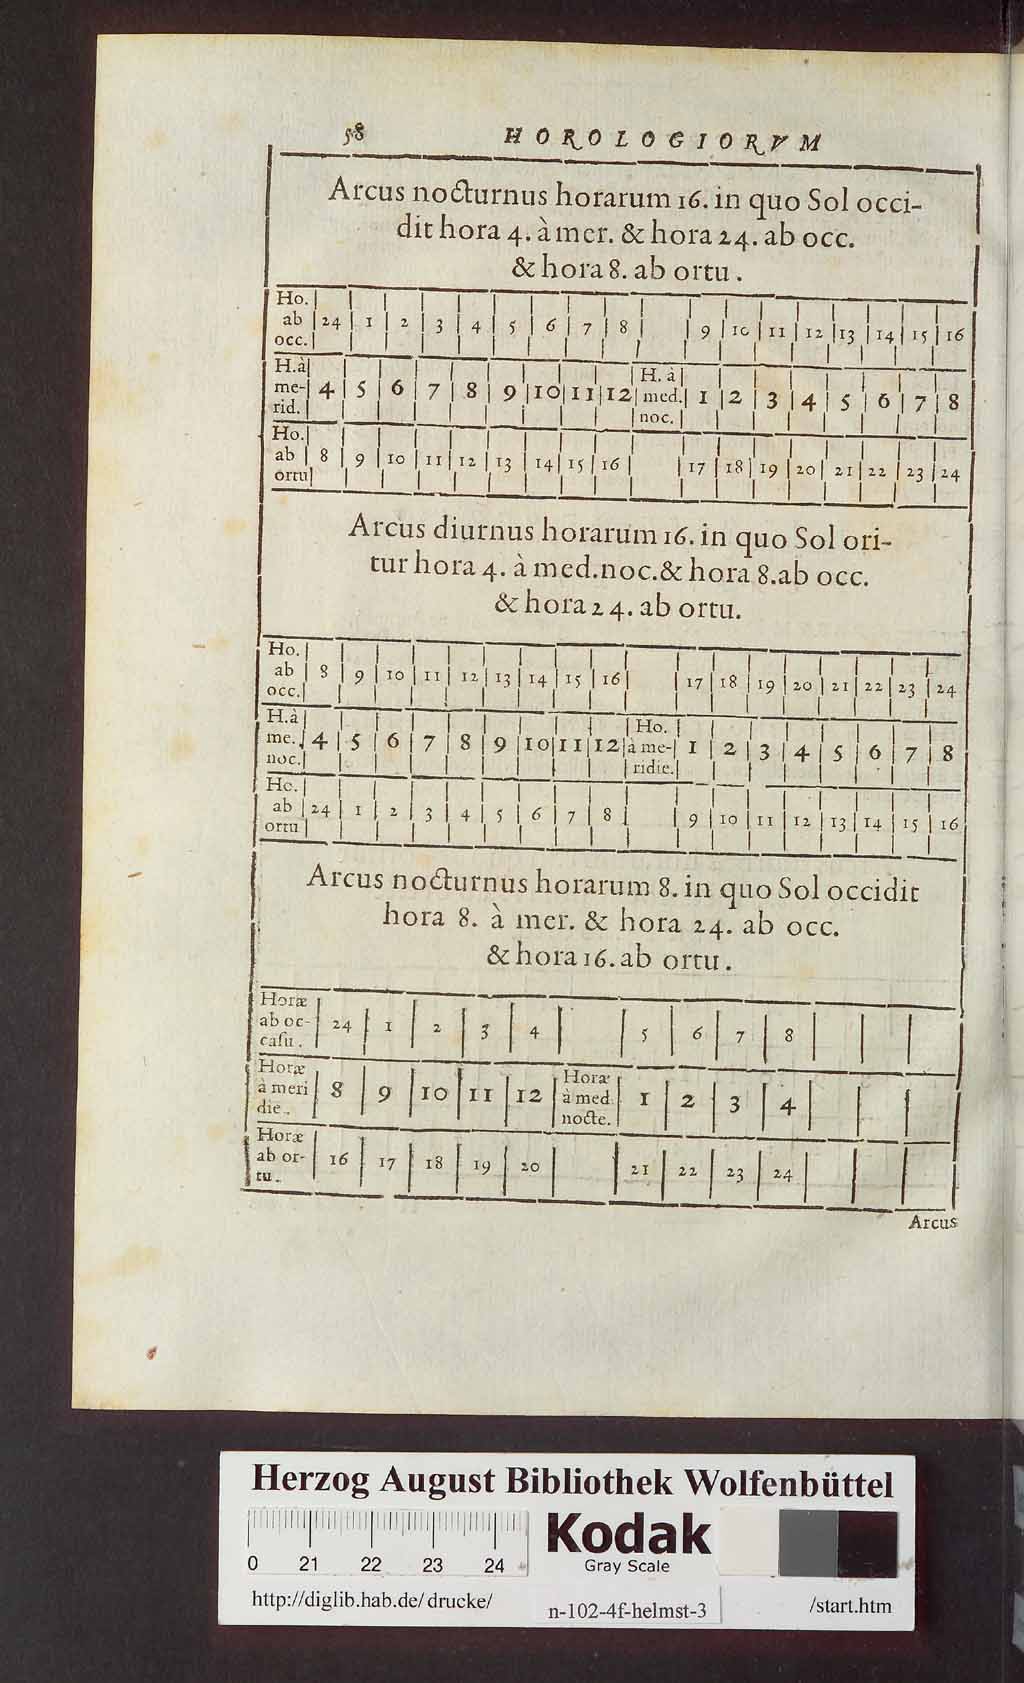 58 HOROLOGIORVM
Arcus nocturnus horarum 16. in quo Sol occi-
dit hora 4. à mer. & hora 24. ab occ.
& hora 8. ab ortu.
Ho. ab occ. | 24 | 1 | 2 | 3 | 4 | 5 | 6 | 7 | 8 | | 9 | 10 | 11 | 12 | 13 | 14 | 15 | 16
H. à me-rid. | 4 | 5 | 6 | 7 | 8 | 9 | 10 | 11 | 12 | H. à med. noc. | 1 | 2 | 3 | 4 | 5 | 6 | 7 | 8
Ho. ab ortu | 8 | 9 | 10 | 11 | 12 | 13 | 14 | 15 | 16 | | 17 | 18 | 19 | 20 | 21 | 22 | 23 | 24
Arcus diurnus horarum 16. in quo Sol ori-
tur hora 4. à med. noc. & hora 8. ab occ.
& hora 24. ab ortu.
Ho. ab occ. | 8 | 9 | 10 | 11 | 12 | 13 | 14 | 15 | 16 | | 17 | 18 | 19 | 20 | 21 | 22 | 23 | 24
H. à me. noc. | 4 | 5 | 6 | 7 | 8 | 9 | 10 | 11 | 12 | Ho. à me-ridie. | 1 | 2 | 3 | 4 | 5 | 6 | 7 | 8
Ho. ab ortu | 24 | 1 | 2 | 3 | 4 | 5 | 6 | 7 | 8 | | 9 | 10 | 11 | 12 | 13 | 14 | 15 | 16
Arcus nocturnus horarum 8. in quo Sol occidit
hora 8. à mer. & hora 24. ab occ.
& hora 16. ab ortu.
Horæ ab oc-casu. | 24 | 1 | 2 | 3 | 4 | | 5 | 6 | 7 | 8
Horæ à meri die. | 8 | 9 | 10 | 11 | 12 | Horæ à med. nocte. | 1 | 2 | 3 | 4
Horæ ab or-tu. | 16 | 17 | 18 | 19 | 20 | | 21 | 22 | 23 | 24
Arcus
Herzog August Bibliothek Wolfenbüttel
0 21 22 23 24
Kodak
Gray Scale
http://diglib.hab.de/drucke/ n-102-4f-helmst-3 /start.htm